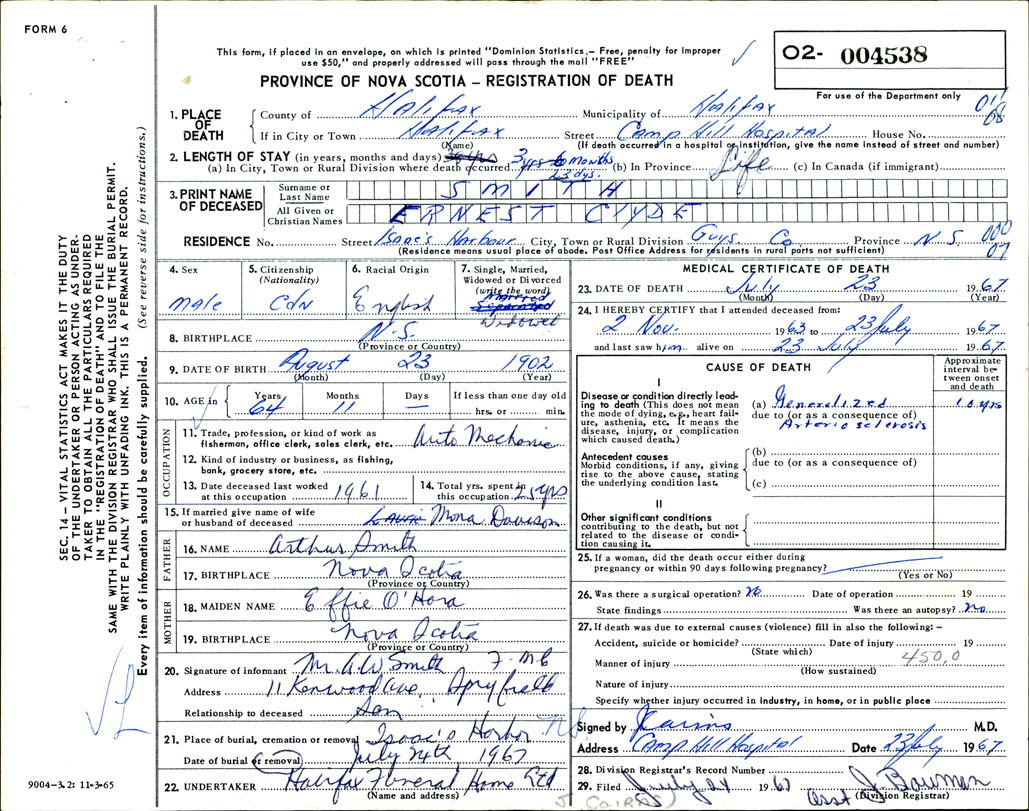 FORM 6
This form, if placed in an envelope, on which is printed "Dominion Statistics.– Free, penalty for improper
use $50," and properly addressed will pass through the mail "FREE"
O2- 004538
For use of the Department only
PROVINCE OF NOVA SCOTIA – REGISTRATION OF DEATH
1. PLACE OF DEATH County of Halifax Municipality of Halifax
If in City or Town Halifax Street Camp Hill Hospital House No.
(Name) (If death occurred in a hospital or institution, give the name instead of street and number)
2. LENGTH OF STAY (in years, months and days)
(a) In City, Town or Rural Division where death occurred 3 yrs 6 months 23 dys. (b) In Province Life (c) In Canada (if immigrant)
3. PRINT NAME OF DECEASED Surname or Last Name SMITH
All Given or Christian Names ERNEST CLYDE
RESIDENCE No. Street Isaac's Harbour City, Town or Rural Division Guys. Co. Province N.S.
(Residence means usual place of abode. Post Office Address for residents in rural parts not sufficient)
4. Sex male
5. Citizenship (Nationality) Cdn
6. Racial Origin English
7. Single, Married, Widowed or Divorced (write the word) Married Separated Widowed
8. BIRTHPLACE N.S.
(Province or Country)
9. DATE OF BIRTH August 23 1902
(Month) (Day) (Year)
10. AGE in Years 64 Months 11 Days — If less than one day old hrs. or min.
OCCUPATION
11. Trade, profession, or kind of work as fisherman, office clerk, sales clerk, etc. Auto Mechanic
12. Kind of industry or business, as fishing, bank, grocery store, etc.
13. Date deceased last worked at this occupation 1961
14. Total yrs. spent in this occupation 25 yrs
15. If married give name of wife or husband of deceased Mona Davison
FATHER
16. NAME Arthur Smith
17. BIRTHPLACE Nova Scotia
(Province or Country)
MOTHER
18. MAIDEN NAME Effie O'Hara
19. BIRTHPLACE Nova Scotia
(Province or Country)
20. Signature of informant Mr. A.W. Smith
Address 11 Kenwood Ave, Spryfield
Relationship to deceased Son
21. Place of burial, cremation or removal Isaac's Harbor N.S.
Date of burial or removal July 24th, 1967
22. UNDERTAKER Halifax Funeral Home Ltd
(Name and address)
MEDICAL CERTIFICATE OF DEATH
23. DATE OF DEATH July 23 1967
(Month) (Day) (Year)
24. I HEREBY CERTIFY that I attended deceased from:
2 Nov. 1963 to 23 July 1967
and last saw him alive on 23 July 1967
CAUSE OF DEATH
Approximate interval between onset and death
I
Disease or condition directly leading to death (This does not mean the mode of dying, e.g., heart failure, asthenia, etc. It means the disease, injury, or complication which caused death.)
(a) Generalized 10 yrs
due to (or as a consequence of)
Arteriosclerosis
Antecedent causes
Morbid conditions, if any, giving rise to the above cause, stating the underlying condition last.
(b)
due to (or as a consequence of)
(c)
II
Other significant conditions
contributing to the death, but not related to the disease or condition causing it.
25. If a woman, did the death occur either during pregnancy or within 90 days following pregnancy?
(Yes or No)
26. Was there a surgical operation? No Date of operation 19
State findings Was there an autopsy? No
27. If death was due to external causes (violence) fill in also the following: –
Accident, suicide or homicide? Date of injury 19
(State which)
Manner of injury 450.0
(How sustained)
Nature of injury
Specify whether injury occurred in industry, in home, or in public place
Signed by J Cairns M.D.
Address Camp Hill Hospital Date 23 July 1967
28. Division Registrar's Record Number
29. Filed July 24 1967 J. Bowman
Asst (Division Registrar)
J. Cairns
SEC. 14 – VITAL STATISTICS ACT MAKES IT THE DUTY
OF THE UNDERTAKER OR PERSON ACTING AS UNDER-
TAKER TO OBTAIN ALL THE PARTICULARS REQUIRED
IN THE "REGISTRATION OF DEATH" AND TO FILE THE
SAME WITH THE DIVISION REGISTRAR WHO SHALL ISSUE THE BURIAL PERMIT.
WRITE PLAINLY WITH UNFADING INK. THIS IS A PERMANENT RECORD.
Every item of information should be carefully supplied. (See reverse side for instructions.)
9004-3.2: 11-3-65